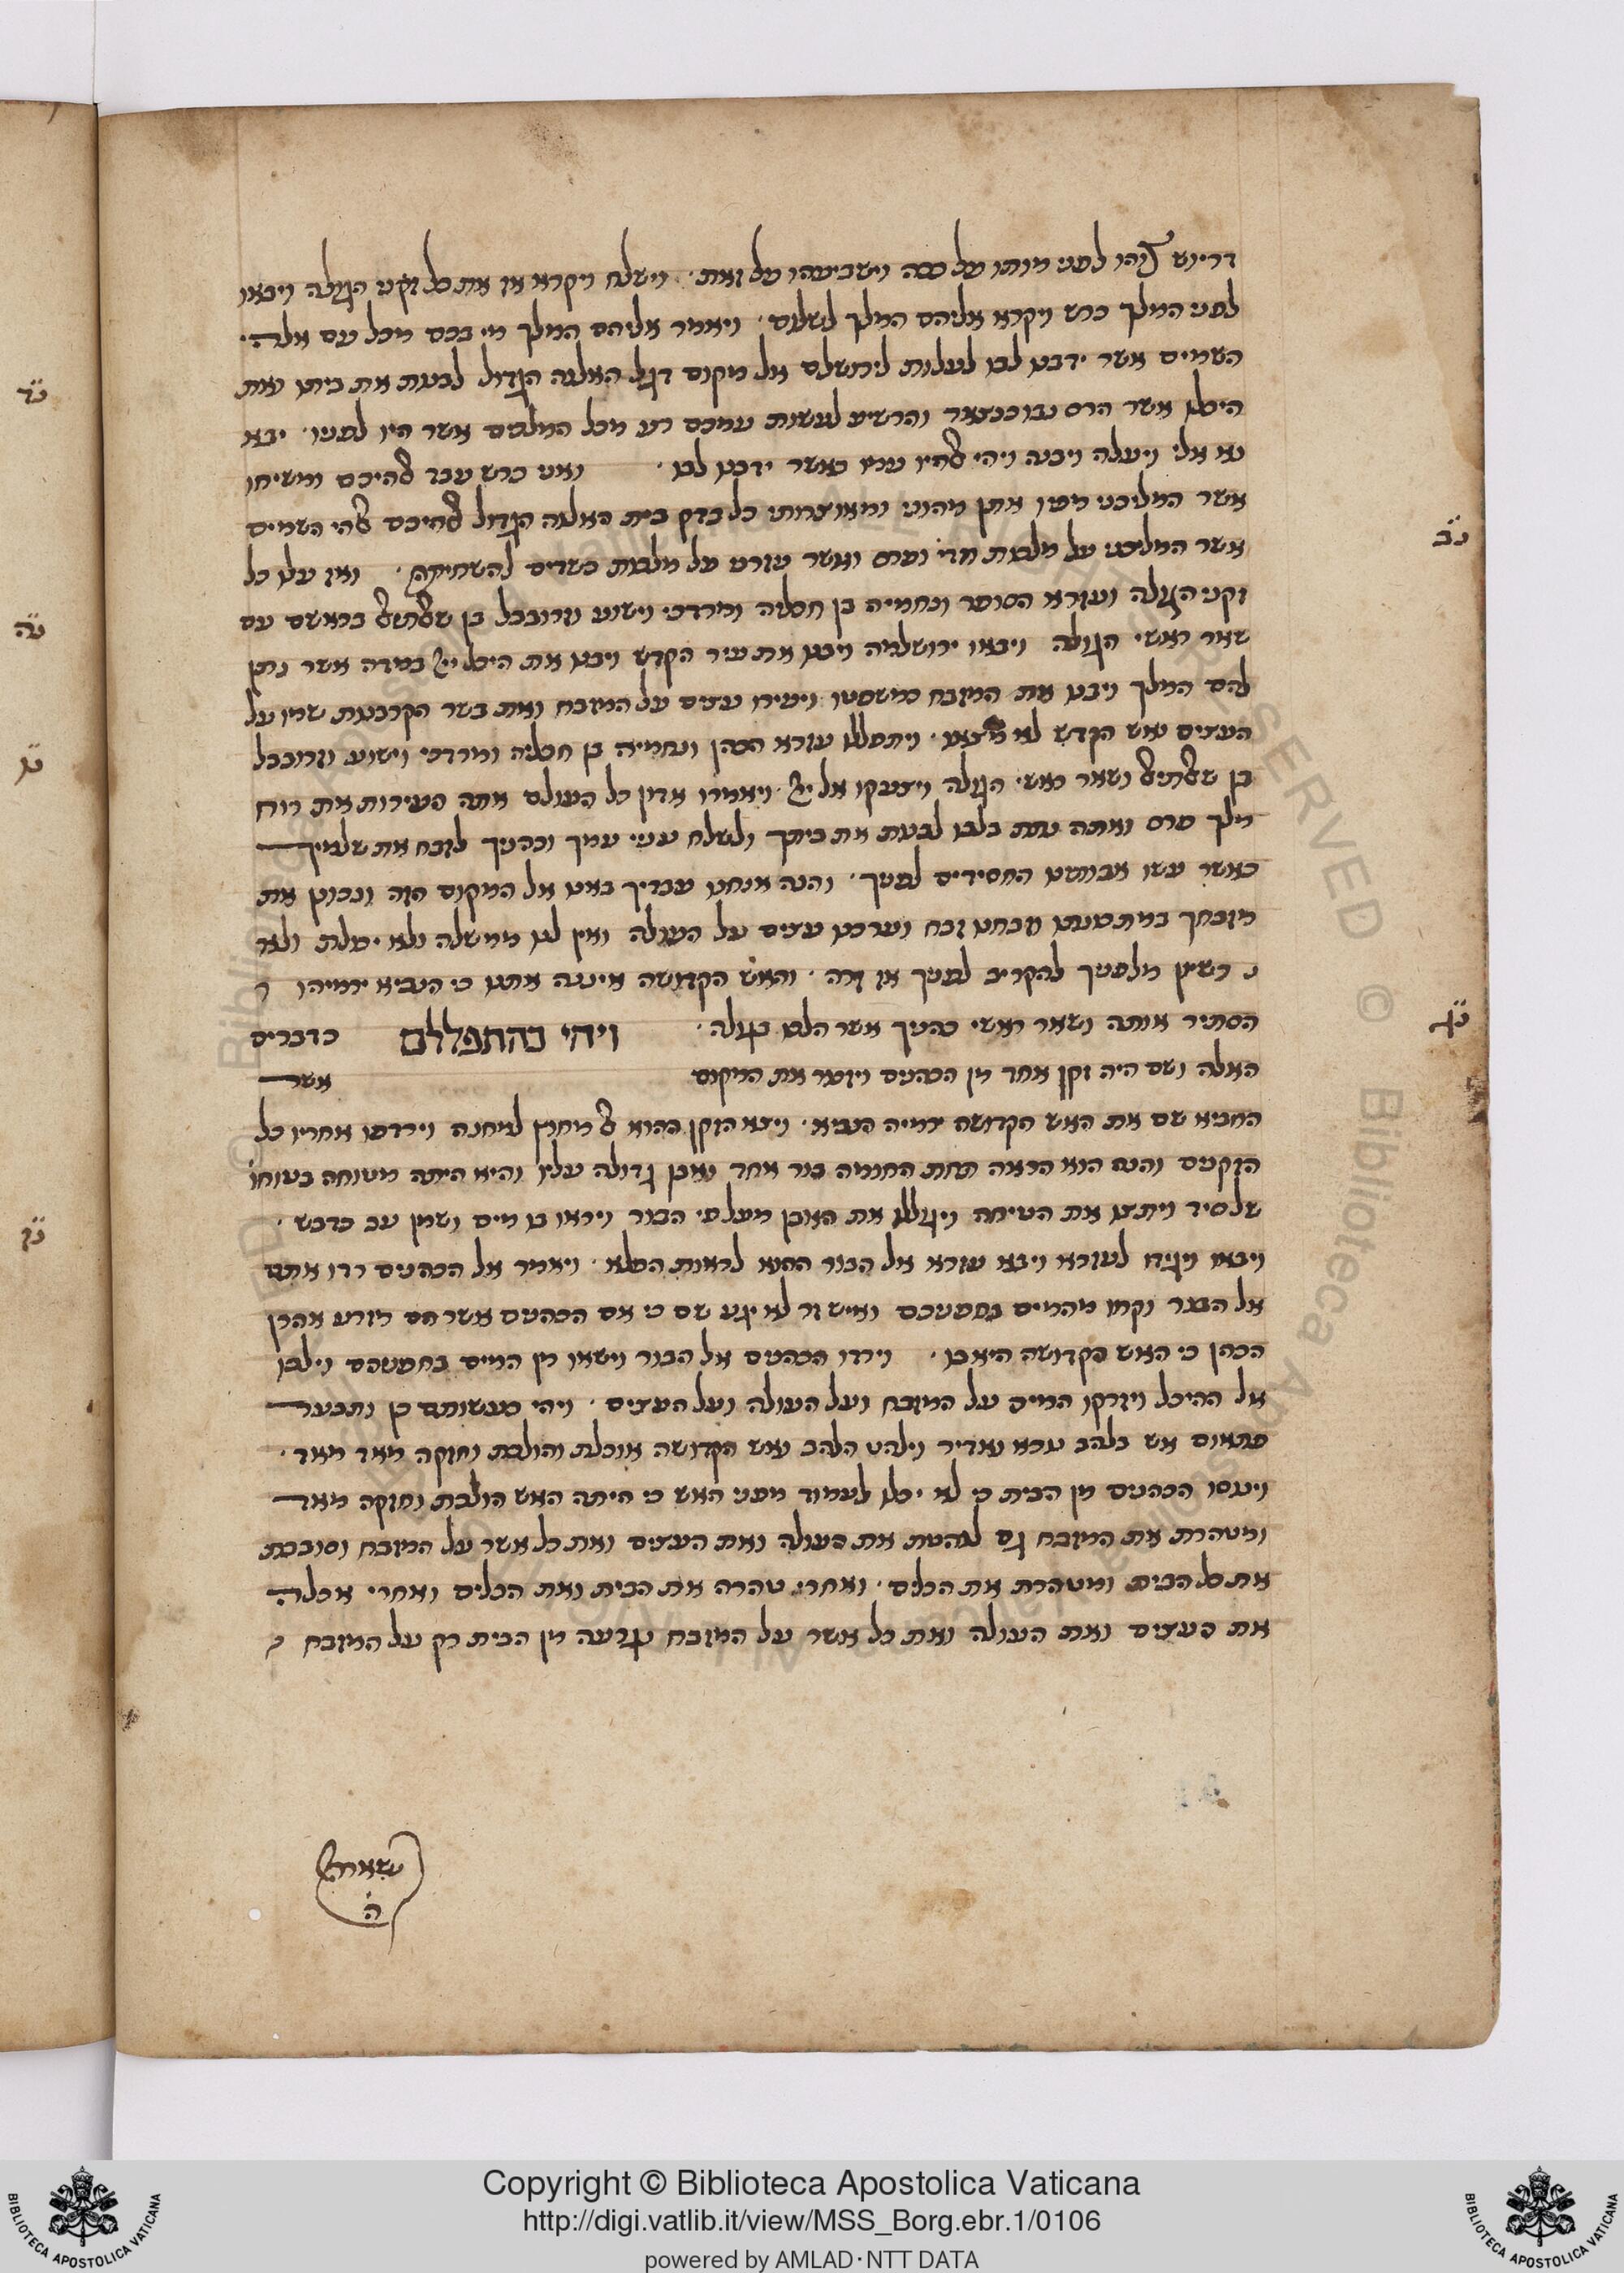 דריוש צוהו לפני מותו על ככה וישביעהו על זאת · וישלח ויקרא אז את כל זקני הגולה ויבאו
לפני המלך כרש ויקרא אליהם המלך לשלום · ויאמר אליהם המלך מי בכם מכל עם אלהי
השמים אשר ידבנו לבו לעלות לירושלם אל מקום דגל האלוה הגדול לבנות את ביתו ואת
היכלו אשר הרס נבוכנצאר והרשיע לעשות עמכם רע מכל המלכים אשר היו לפניו · יבא
נא אלי ויעלה ויבנה ויהי אלהיו עמו כאשר ידבנו לבו · ואני כרש עבד אלהיכם ומשיחו
אשר המליכני ממנו אתן מהוני ומאוצרותי כל בדק בית האלוה הגדול אלהיכם אלהי השמים
אשר המליכני על מלכות מדי ופרס ואשר עזרני על מלכות כשדים להשחיתה · ואז עלו כל
זקני הגולה ועזרא הסופר ונחמיה בן חכליה ומרדכי וישוע וזרובבל בן שאלתיאל בראשם עם
שאר ראשי הגולה ויבאו ירושלמה ויבנו את עיר הקדש ויבנו את היכל ייי במדה אשר נתן
להם המלך ויבנו את המזבח כמשפטו ויעירו עצים על המזבח ואת בשר הקרבנות שמו על
העצים ואש הקדש לא מצאו · ויתפללו עזרא הכהן ונחמיה בן חכליה ומרדכי וישוע וזרובבל
בן שאלתיאל ושאר ראשי הגולה ויצעקו אל ייי · ויאמרו אדון כל העולם אתה העירות את רוח
מלך פרס ואתה נתת בלבו לבנות את ביתך ולשלח עניי עמך וכהניך לזבח את שלמיך
כאשר עשו אבותינו החסידים לפניך · והנה אנחנו עבדיך באנו אל המקום הזה ונכונן את
מזבחך במתכונתו וזבחנו זבח וערכנו עצים על העולה ואין לנו ממשלה ולא יכולת ולא
רשיון מלפניך להקריב לפניך אש זרה · והאש הקדושה איננה אתנו כי הנביא ירמיהו
הסתיר אותה ושאר ראשי כהניך אשר הלכו בגולה · ויהי כהתפללם כדברים
האלה ושם היה זקן אחד מן הכהנים ויזכור את המקום אשר
החביא שם את האש הקדושה ירמיה הנביא · ויצא הזקן ההוא אל מחוץ למחנה וירדפו אחריו כל
הזקנים והנה הוא הראה תחת החומה בור אחד ואבן גדולה עליו והיא היתה מטוחה בטוחו
של סיד ויתצו את הטיחה ויגוללו את האבן מעל פי הבור ויראו בו מים ושמן עב כדבש ·
ויבאו ויגידו לעזרא ויבא עזרא אל הבור ההוא לראות הפלא · ויאמר אל הכהנים רדו אתם
אל הבור וקחו מהמים בחפניכם ואיש זר לא יגע שם כי אם הכהנים אשר הם מזרע אהרן
הכהן כי האש הקדושה היא בו · וירדו הכהנים אל הבור וישאו מן המים בחפניהם וילכו
אל ההיכל ויזרקו המים על המזבח ועל העולה ועל העצים · ויהי כעשותם כן ותבער
פתאום אש בלהב נורא ואדיר וילהט הלהב ואש הקדושה אוכלת והולכת וחזקה מאד מאד ·
וינוסו הכהנים מן הבית כי לא יכלו לעמוד מפני האש כי היתה האש הולכת וחזקה מאד
ומטהרת את המזבח גם להטת את העולה ואת העצים ואת כל אשר על המזבח וסובבת
את כל הבית ומטהרת את הכלים · ואחרי טהרה את הבית ואת הכלים ואחרי אכלה
את העצים ואת העולה ואת כל אשר על המזבח נגרעה מן הבית רק על המזבח
נב
נד
נה
נו
נז
נשארה
ה
Copyright © Biblioteca Apostolica Vaticana
http://digi.vatlib.it/view/MSS_Borg.ebr.1/0106
powered by AMLAD·NTT DATA
BIBLIOTECA APOSTOLICA VATICANA
BIBLIOTECA APOSTOLICA VATICANA